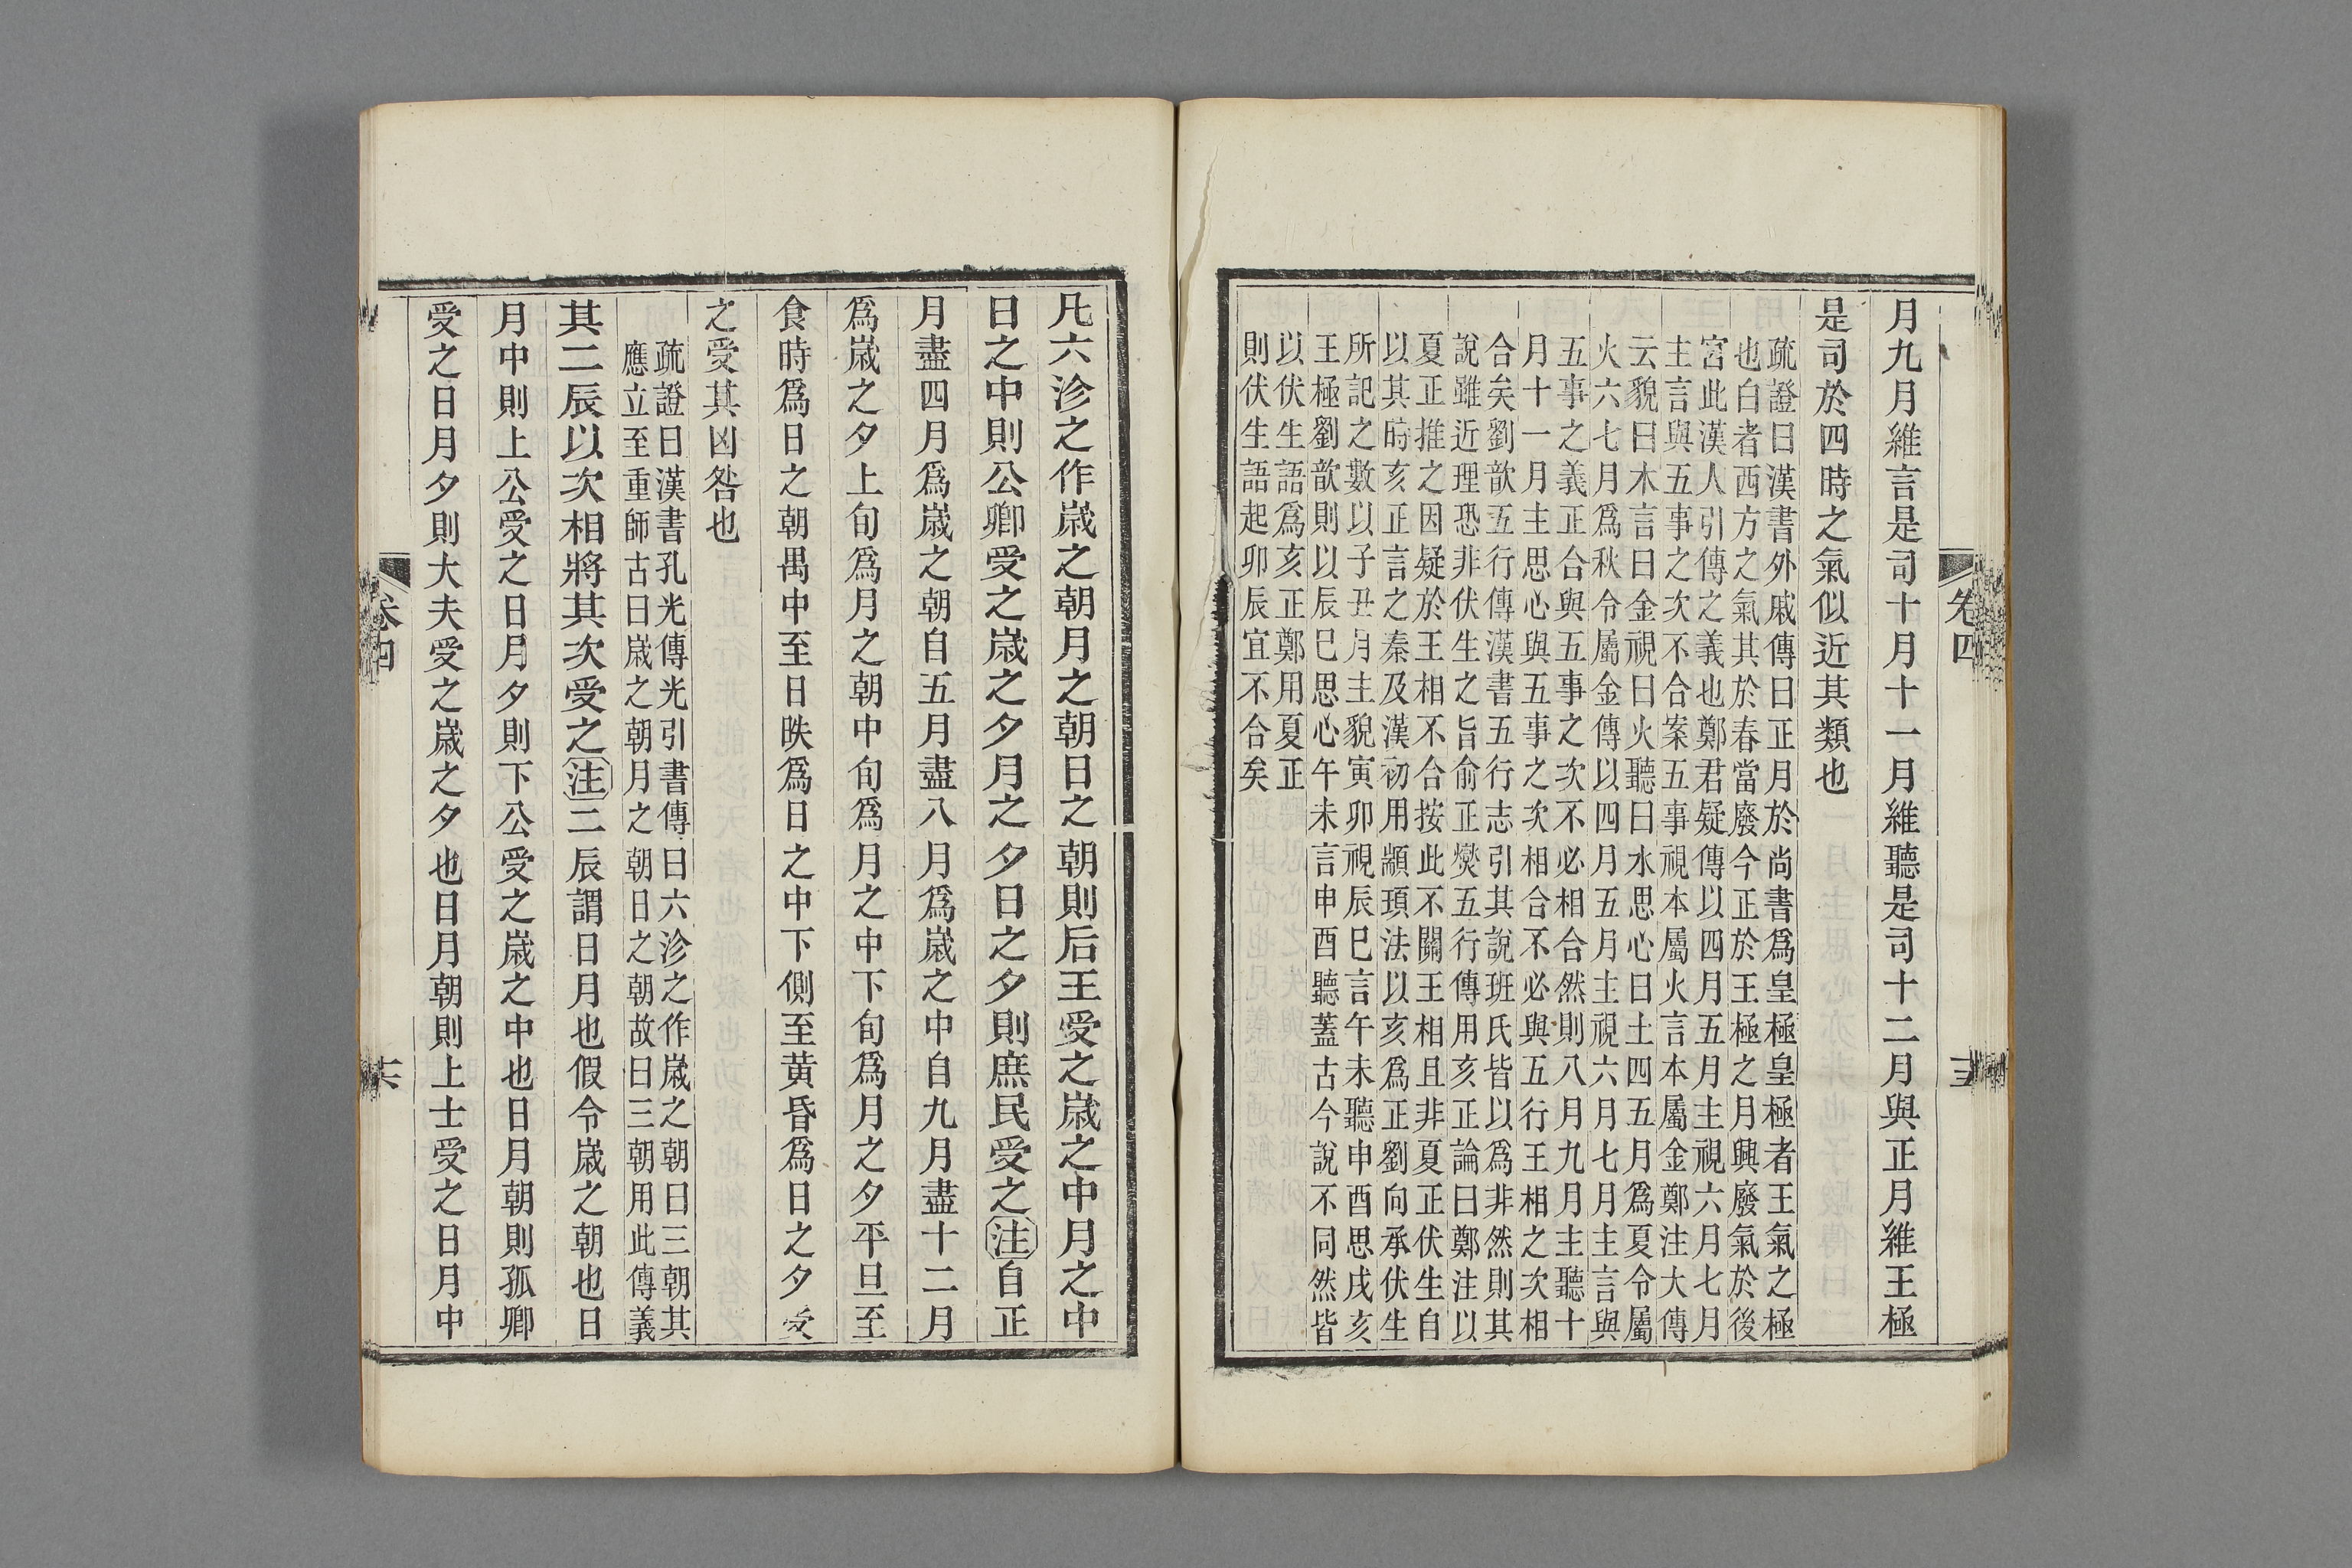 月九月維言是司十月十一月維聽是司十二月與正月維王極
是司於四時之氣似近其類也
疏證曰漢書外戚傳曰正月於尚書爲皇極皇極者王氣之極
也白者西方之氣其於春當廢今正於王極之月興廢氣於後
宮此漢人引傳之義也鄭君疑傳以四月五月主視六月七月
主言與五事之次不合案五事視本屬火言本屬金鄭注大傳
云貌曰木言曰金視曰火聽曰水思心曰土四五月爲夏令屬
火六七月爲秋令屬金傳以四月五月主視六月七月主言與
五事之義正合與五事之次不必相合然則八月九月主聽十
月十一月主思心與五事之次相合不必與五行王相之次相
合矣劉歆五行傳漢書五行志引其說班氏皆以爲非然則其
說雖近理恐非伏生之旨俞正燮五行傳用亥正論曰鄭注以
夏正推之因疑於王相不合按此不關王相且非夏正伏生自
以其時亥正言之秦及漢初用顓頊法以亥爲正劉向承伏生
所記之數以子丑月主貌寅卯視辰巳言午未聽申酉思戌亥
王極劉歆則以辰巳思心午未言申酉聽蓋古今說不同然皆
以伏生語爲亥正鄭用夏正
則伏生語起卯辰宜不合矣
卷四
凡六沴之作歲之朝月之朝日之朝則后王受之歲之中月之中
日之中則公卿受之歲之夕月之夕日之夕則庶民受之注自正
月盡四月爲歲之朝自五月盡八月爲歲之中自九月盡十二月
爲歲之夕上旬爲月之朝中旬爲月之中下旬爲月之夕平旦至
食時爲日之朝禺中至日昳爲日之中下側至黃昏爲日之夕受
之受其凶咎也
疏證曰漢書孔光傳光引書傳曰六沴之作歲之朝曰三朝其
應立至重師古曰歲之朝月之朝日之朝故曰三朝用此傳義
其二辰以次相將其次受之注二辰謂日月也假令歲之朝也日
月中則上公受之日月夕則下公受之歲之中也日月朝則孤卿
受之日月夕則大夫受之歲之夕也日月朝則上士受之日月中
卷四